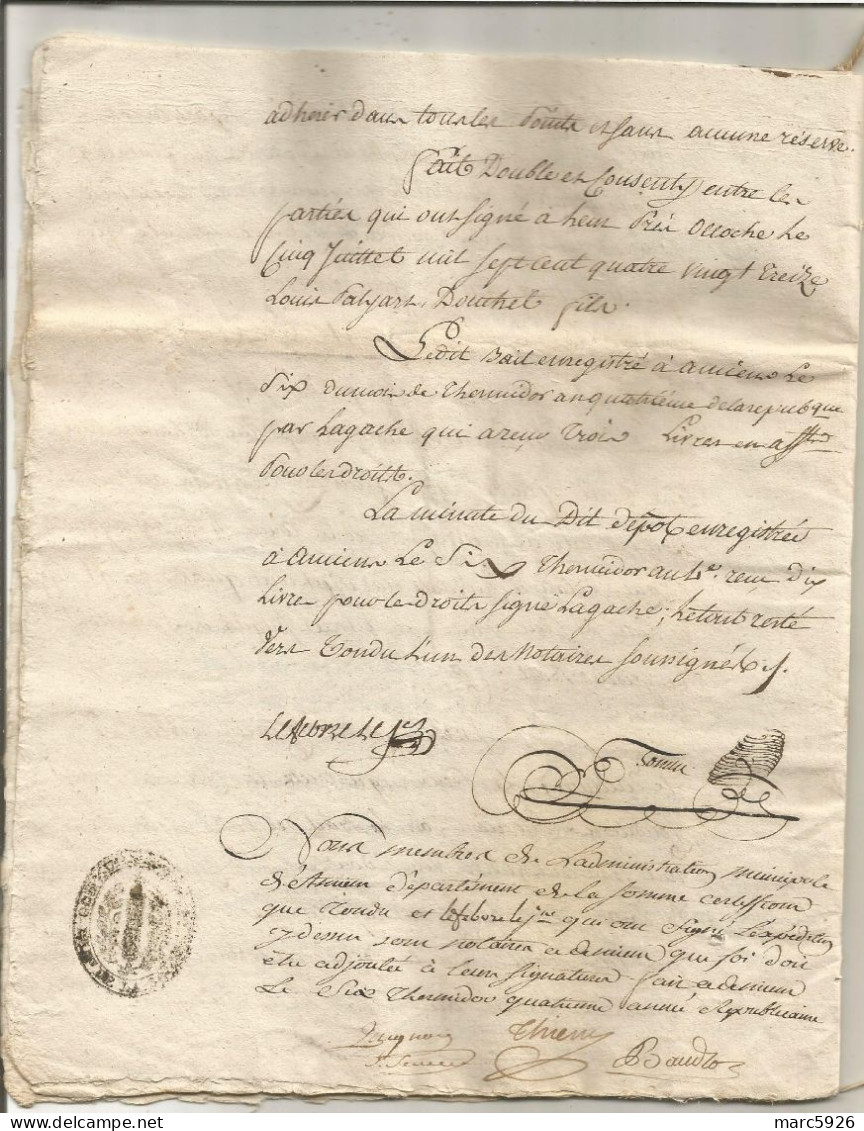 adherer dans tous les Points et sans aucune réserve.
fait Double et Consenty entre les
parties qui ont signé à hem Près occoche Le
Cinq Juillet mil sept cent quatre vingt treize
Louis Douchet fils.
Ledit Bail enregistré à amiens Le
Six du mois de thermidor an quatrième de la repubque
par Lagache qui a reçu trois Livres en
Pour les droits.
La minute du Dit depot enregistrée
à amiens Le Six thermidor an 4e. reçu Dix
Livres pour le droits signé Lagache; Le tout resté
Vers tondu L'un des Notaires soussignés
Lefebvre Le Jne
Tondu
Nous membres de L'administration municipale
d'Amiens département de la Somme certiffions
que tondu et lefebvre le jne qui ont signé L'expédition
cydessus sont notaires a amiens que foi doit
etre adjoutée à leurs signatures fait a amiens
Le Six thermidor quatrieme année Republicaine
Thierry Baudlo
marc5926